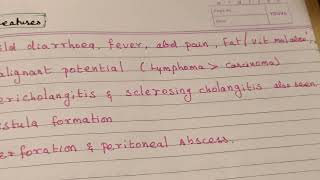 eatures
ild diarrhoea, fever, abd pain, Fat/vit malabs
alignant potential (Lymphoma > Carcinoma)
ericholangitis & sclerosing cholangitis also seen
stula formation
erforation & peritoneal abscess.